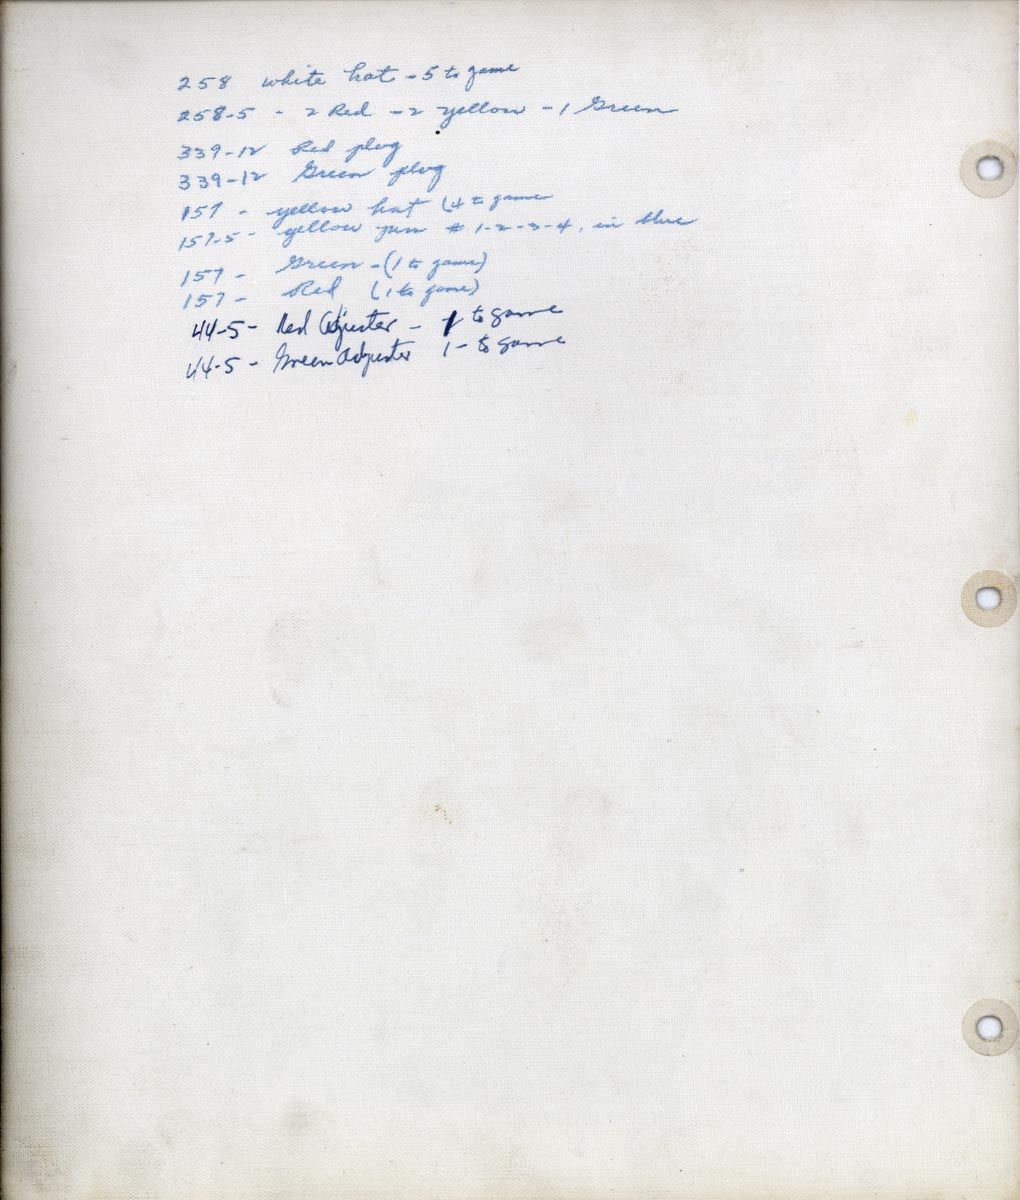 258 white hat - 5 to game
258-5 - 2 Red - 2 yellow - 1 Green
339-12 Red plug
339-12 Green plug
157 - yellow hat (4 to game
157-5 - yellow # 1-2-3-4, in blue
157 - Green - (1 to game)
157 - Red (1 to game)
44-5 - Red Adjuster - 1 to game
44-5 - Green Adjuster 1 - to game